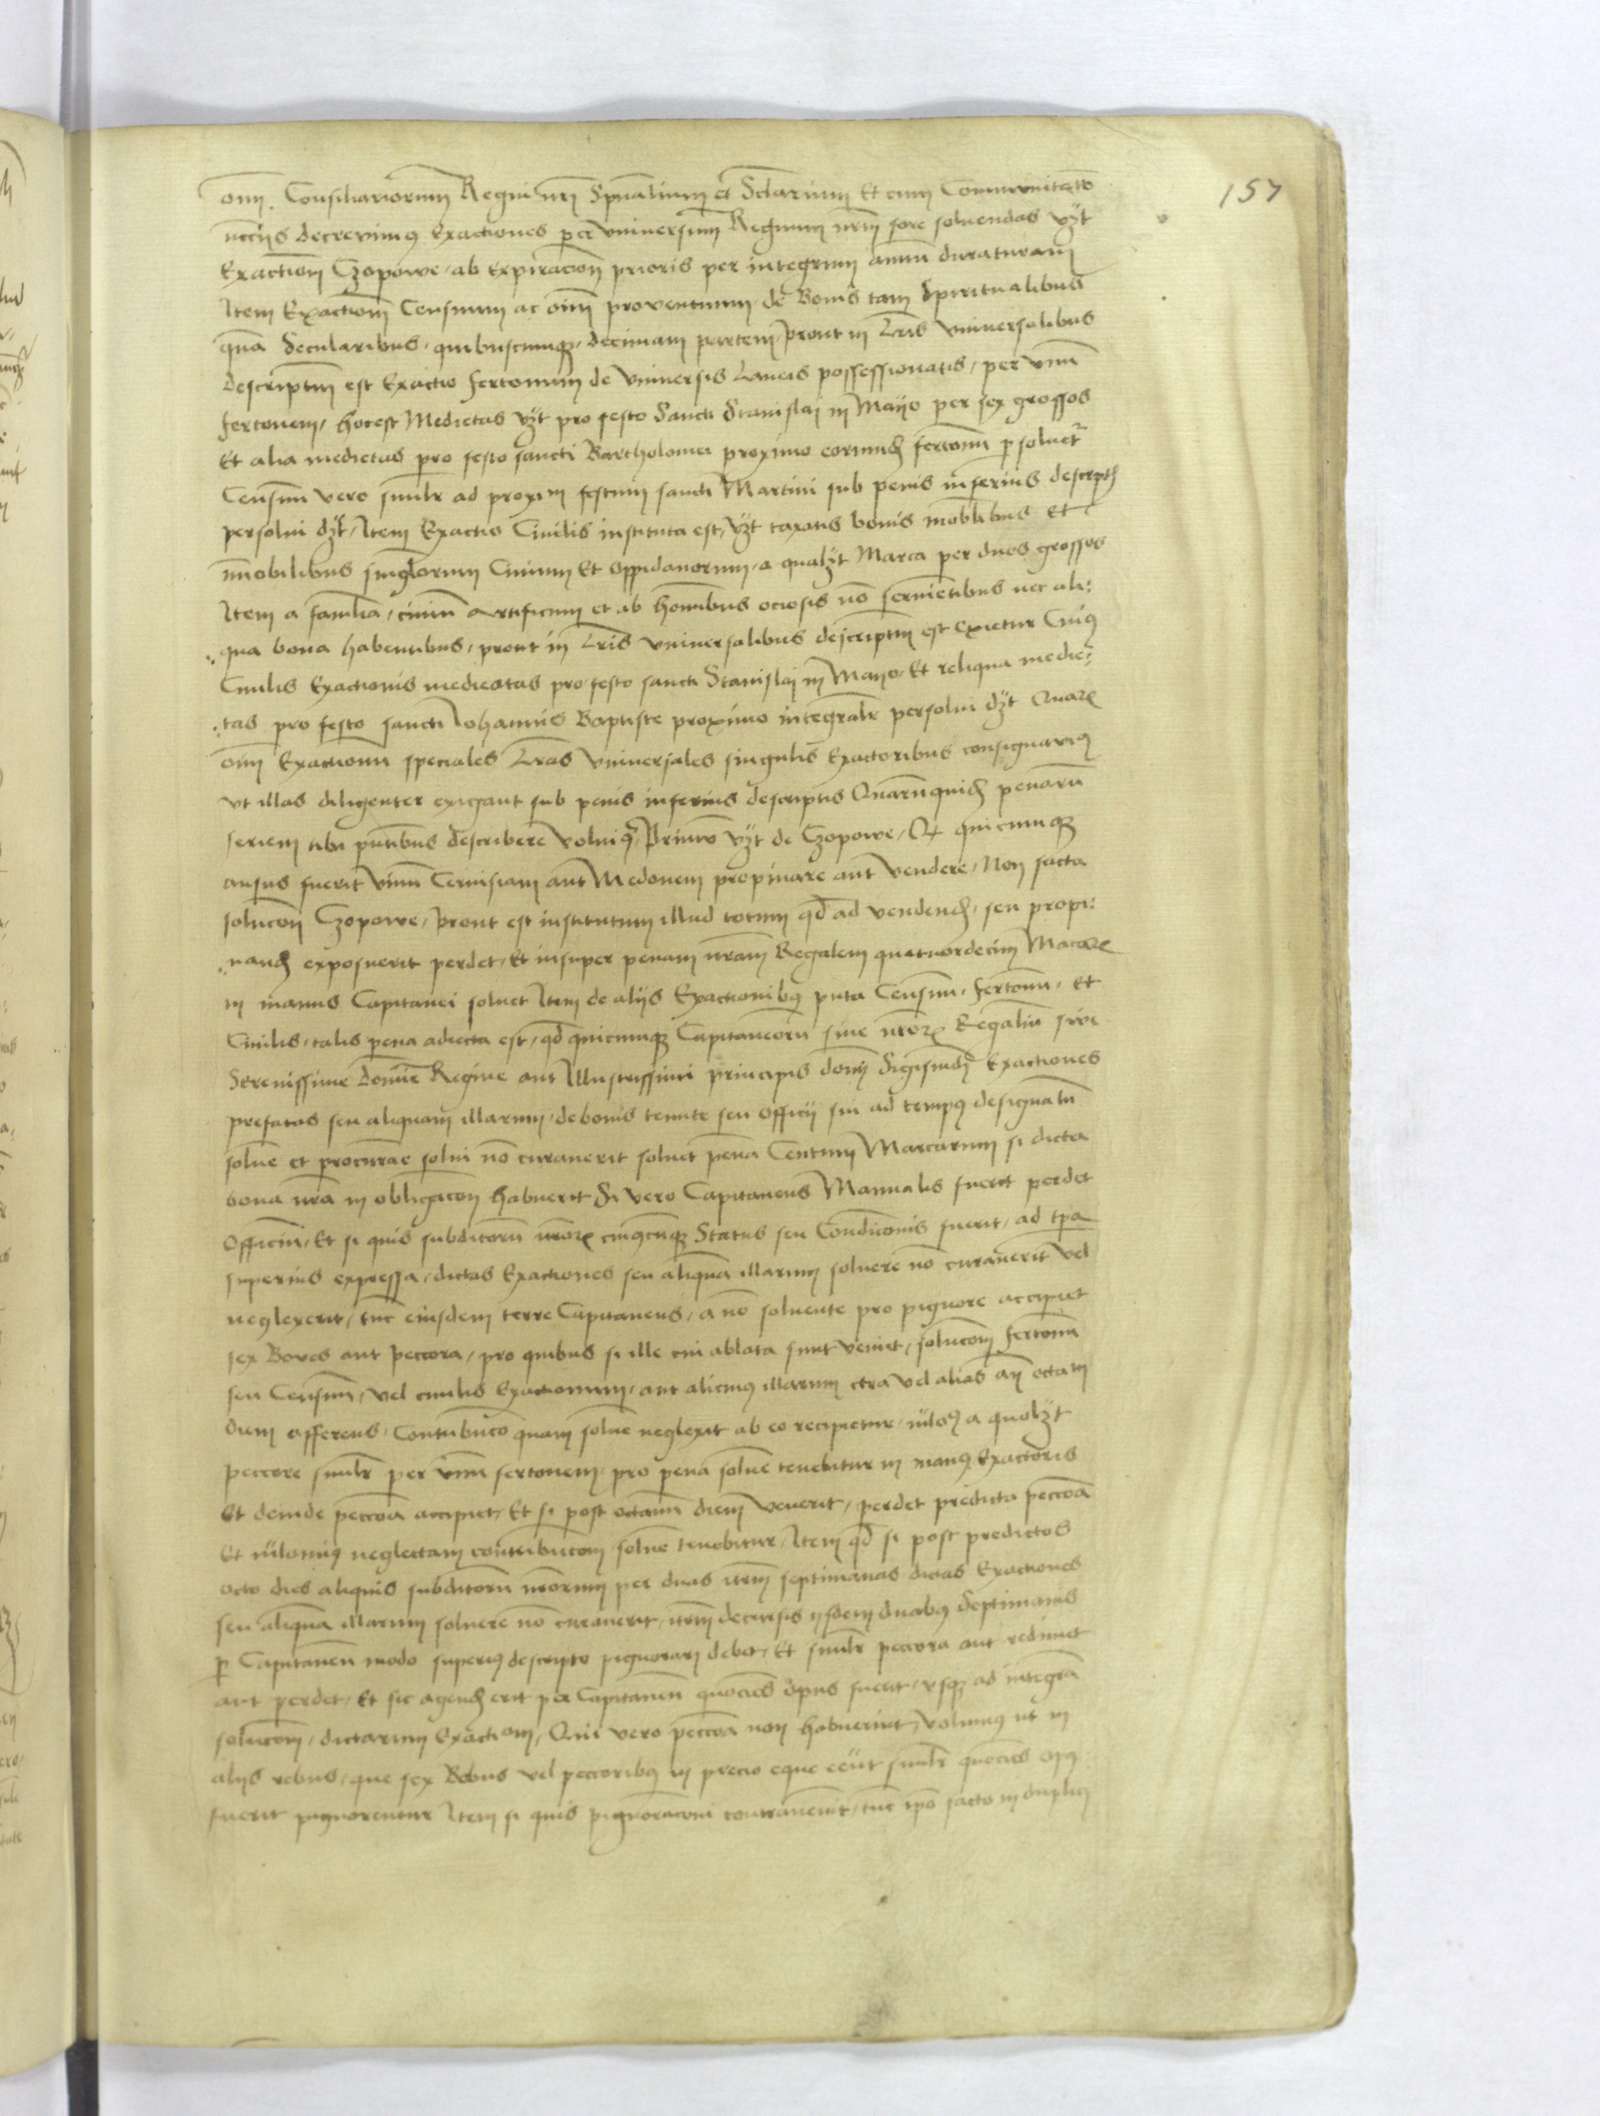 157
om̄. Consiliariorum Regni nr̄i Spūalium et Sclarium Et cum Communitate
decrevimus Exactiones per universum Regnum nr̄m fore solvendas vʒt
Exactionē Czopowe, ab expiracionē prioris per integrum annū duraturam
Item Exactionē Censuum ac oīm proventuum, de Bonis tam Spiritualibus
quā Secularibus, quibuscumqʒ, decimam partem, prout in Lr̄is Universalibus
descriptum est Exactio fertonum de Universis Laneis possessionatis, per unū
fertonem, hoc est Medietas vʒt pro festo Sancti Stanislai in Mayo per sex grossos
Et alia medietas pro festo sancti Bartholomei proximo eorundē fertonū persolvetʳ
Censum vero simlr ad proxim festum sancti Martini sub penis inferius descriptis
persolvi dʒt, Item Exactio Civilis instituta est, vʒt taxatis bonis mobilibus Et
īmobilibus singlorum Civium Et oppidanorum, a qualʒt Marca per duos grossos
Item a familia, civiū Artificum et ab hoīnibus ociosis nō servientibus nec ali-
qua bona habentibus, prout in Lr̄is Universalibus descriptum est exietur Cuius
Civilis Exactionis medieatas pro festo sancti Stanislai in Mayo, Et reliqua medie-
tas pro festo sancti Iohannis Baptiste proximo integralr persolvi dʒt Quarē
oīm Exactionū speciales Lr̄as Universales singulis Exactoribus consignavimus
ut illas diligenter exigant sub penis inferius descriptis Quarūquidē penarū
seriem tibi pn̄tibus describere voluimus, Primo vʒt de Czopowe, Qd quicumqʒ
ausus fuerit vinū Cervisiam aut Medonem propinare aut vendere, Non facta
solucōn Czopowe, prout est institutum illud totum qd ad vendendū, seu propi-
nandū exposuerit perdet, Et insuper penam nr̄am Regalem quatuordecim Marcarum
in manus Capitanei solvet Item de alijs Exactionibus puta Censuum, fertonū, Et
Civilis, talis pena adiecta est, qd quicumqʒ Capitaneorū sive nr̄orum Regaliū sive
Serenissime Domine Regine aut Illustrissimi principis domini Sigismundi Exactiones
prefatas seu aliquam illarum, de bonis tenute seu officij sui ad tempus designatū
solvere et procurare solvi nō curaverit solvet penā Centum Marcarum si dicta
bona nr̄a in obligacōn habuerit Si vero Capitaneus Manualis fuerit perdet
Officiū, Et si quis subditorū nr̄orum cuiuscūqʒ Status seu Condicionis fuerit, ad tp̄a
superius expressa, dictas Exactiones seu aliquā illarum solvere nō curaverit vel
neglexerit, tūc eiusdem terre Capitaneus, a nō solvente pro pignore accipiet
sex Boves aut peccora, pro quibus si ille cui ablata sunt veniet, solucōnē fertonū
seu Censuum, vel civilis Exactionum, aut alicuius illarum vel alias an̄ octavū
diem offerens, Contribucō quam solvere neglexit ab eo recipietur, a quolʒt
peccore simlr per unū fertonem, pro pena solvere tenebitur in manus Exactoris
Et deinde peccora accipiet, Et si post octavū diem venerit, perdet predicta peccora
Et neglectam contribucōnem solvere tenebitur, Item qd si post predictos
octo dies aliquis subditorū nr̄orum per duas septimanas dictas Exactiones
seu aliquā illarum solvere nō curaverit, decursis ijsdem duabus Septimanis
per Capitaneū modo superius descripto pignorari debet, Et simlr peccora aut redimet
aut perdet, Et sic agendū erit per Capitaneū quociēs opus fuerit, usqʒ ad integrā
solucōnē, dictarum Exactionum, Qui vero peccora non habuerint, volumus ut in
alijs rebus, que sex Bobus vel peccoribus in precio eque simlr quociēs opus
fuerit pignorentur Item si quis pignoracioni contravenerit, tūc ip̄o facto in duplici